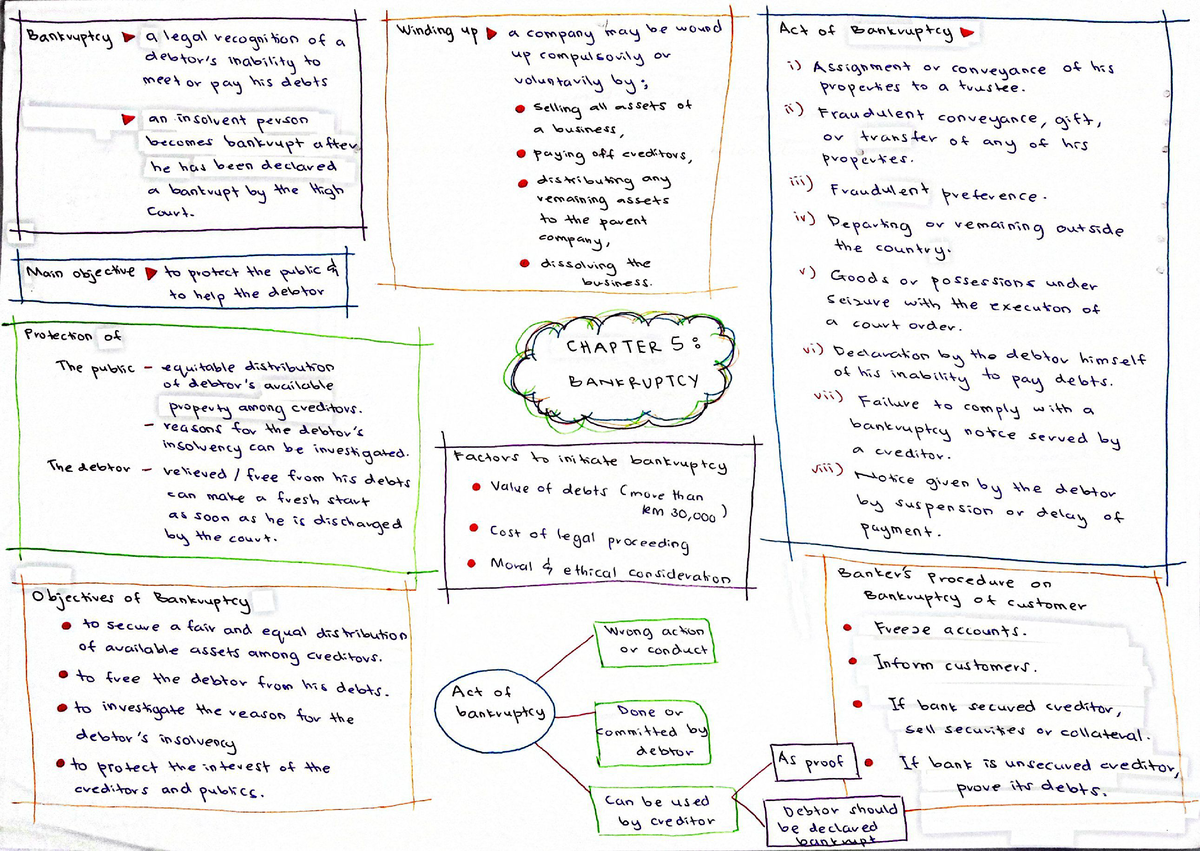 Bankruptcy ▶ a legal recognition of a
debtor's inability to
meet or pay his debts
▶ an insolvent person
becomes bankrupt after
he has been declared
a bankrupt by the High
Court.
Main objective ▶ to protect the public &
to help the debtor
Protection of
The public – equitable distribution
of debtor's available
property among creditors.
– reasons for the debtor's
insolvency can be investigated.
The debtor – relieved / free from his debts
can make a fresh start
as soon as he is discharged
by the court.
Objectives of Bankruptcy
• to secure a fair and equal distribution
of available assets among creditors.
• to free the debtor from his debts.
• to investigate the reason for the
debtor's insolvency
• to protect the interest of the
creditors and publics.
Winding up ▶ a company may be wound
up compulsorily or
voluntarily by;
• selling all assets of
a business,
• paying off creditors,
• distributing any
remaining assets
to the parent
company,
• dissolving the
business.
CHAPTER 5:
BANKRUPTCY
Factors to initiate bankruptcy
• Value of debts (more than
RM 30,000)
• Cost of legal proceeding
• Moral & ethical consideration
Act of
bankruptcy
Wrong action
or conduct
Done or
committed by
debtor
Can be used
by creditor
As proof
Debtor should
be declared
bankrupt
Act of Bankruptcy ▶
i) Assignment or conveyance of his
properties to a trustee.
ii) Fraudulent conveyance, gift,
or transfer of any of his
properties.
iii) Fraudulent preference.
iv) Departing or remaining outside
the country.
v) Goods or possessions under
seizure with the execution of
a court order.
vi) Declaration by the debtor himself
of his inability to pay debts.
vii) Failure to comply with a
bankruptcy notice served by
a creditor.
viii) Notice given by the debtor
by suspension or delay of
payment.
Banker's Procedure on
Bankruptcy of customer
• Freeze accounts.
• Inform customers.
• If bank secured creditor,
sell securities or collateral.
• If bank is unsecured creditor,
prove its debts.